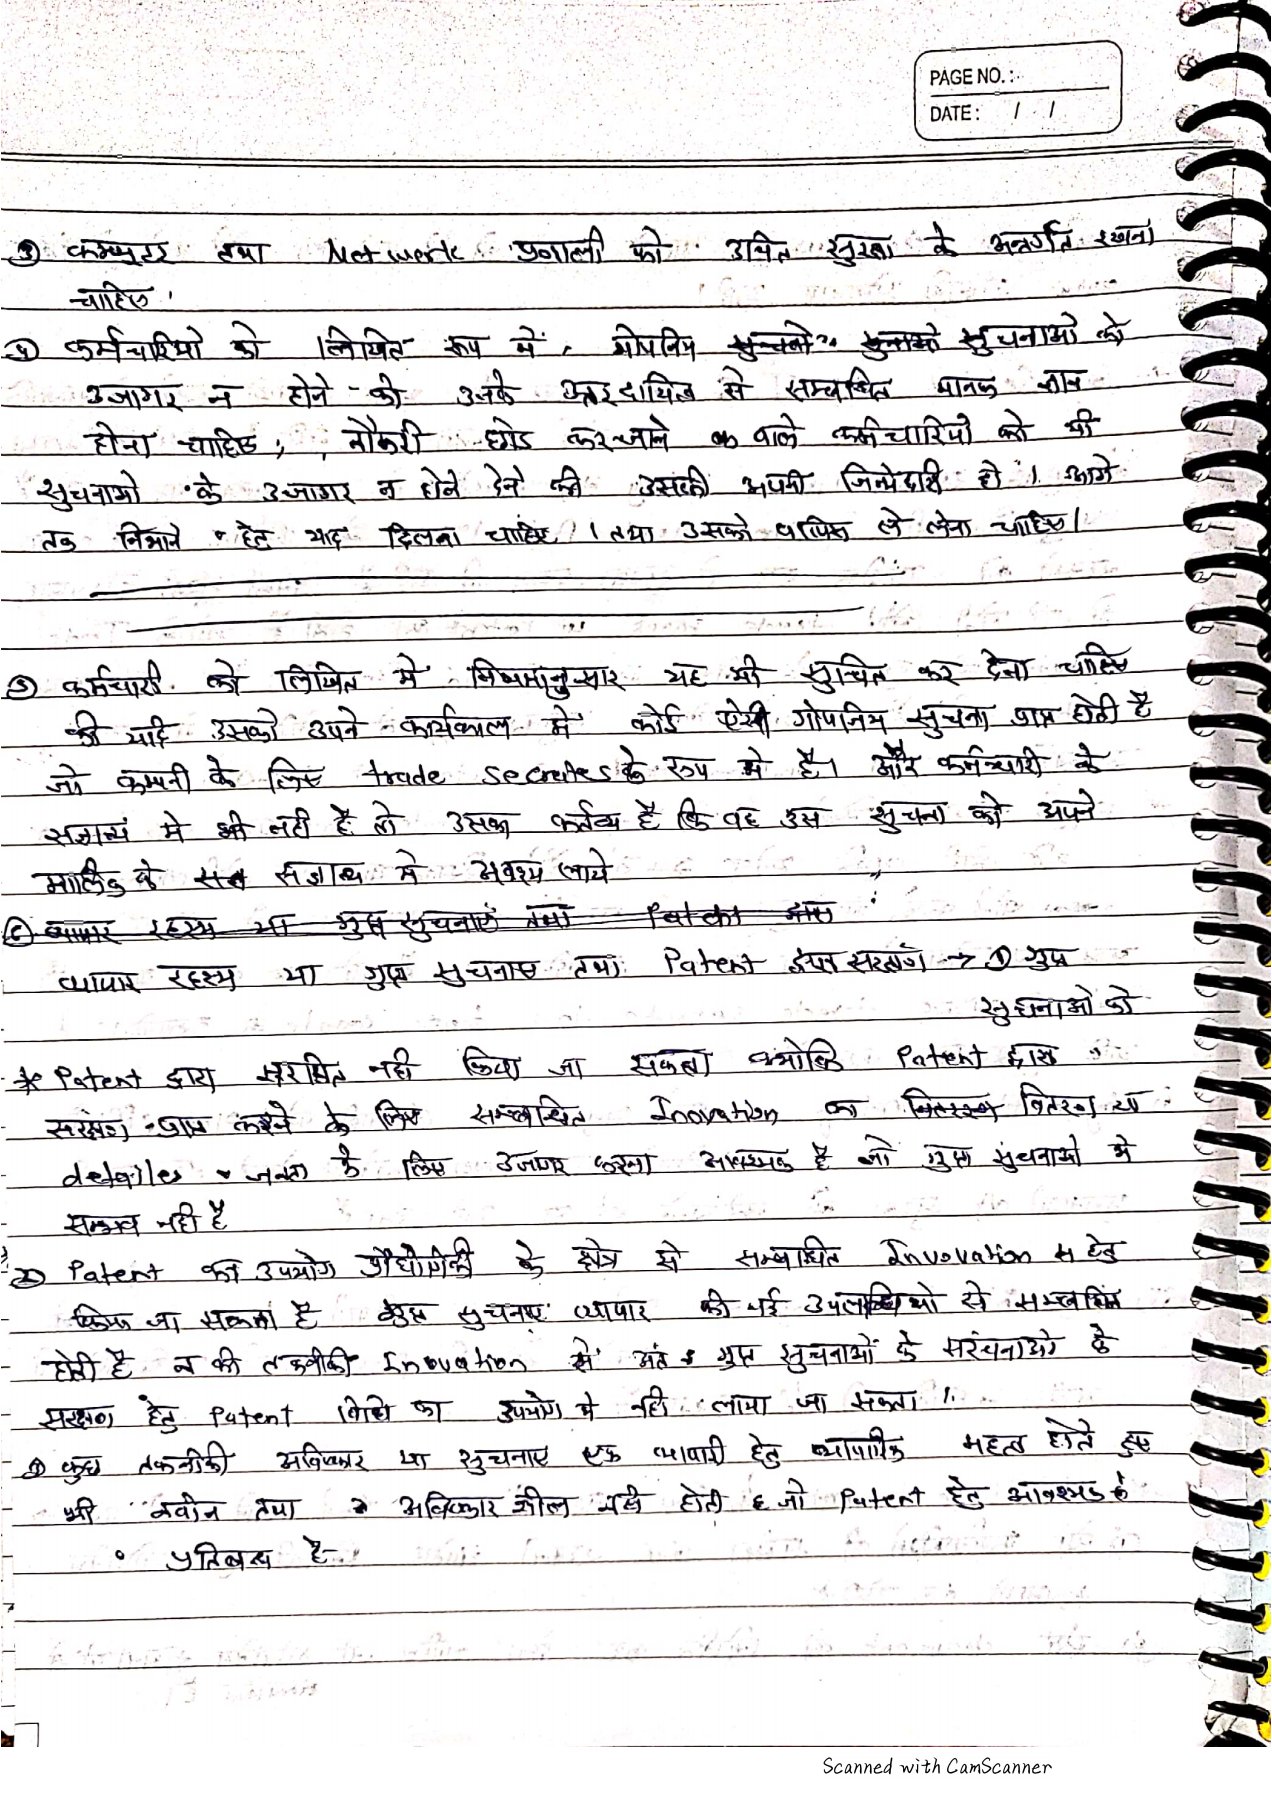 PAGE NO. :
DATE : / /
③ कम्प्युटर तथा Network प्रनाली को उचित सुरक्षा के अन्तर्गत रखना
चाहिए ।
④ कर्मचारियो को लिखित रूप में, गोपनिय सुचनाओ को
उजागर न होने की उनके उत्तरदायित्व से सम्बन्धित मानक ज्ञान
होना चाहिए, नौकरी छोड कर जाने वाले कर्मचारियो को भी
सुचनाओ के उजागर न होने देने की उसकी अपनी जिम्मेदारी हो । आगे
तक निभाने हेतु याद दिलना चाहिए । तथा उसको वापिस ले लेना चाहिए।
⑤ कर्मचारी को लिखित मे नियमानुसार यह भी सुचित कर देना चाहिए
की यदि उसको अपने कार्यकाल मे कोई ऐसी गोपनिय सुचना प्राप्त होती है
जो कम्पनी के लिए trade secretes के रूप मे है। और कर्मचारी के
सज्ञान्य मे भी नही है तो उसका कर्तव्य है कि वह उस सुचना को अपने
मालिक के संज्ञान्य मे अवश्य लाये
⑥ व्यापार रहस्य या गुप्त सुचनाएं तथा
व्यापार रहस्य या गुप्त सुचनाए तथा Patent द्वारा सरक्षण → ① गुप्त
सुचनाओ को
* Patent द्वारा सुरक्षित नही किया जा सकता क्योकि Patent द्वारा
सरक्षण प्राप्त करने के लिए सम्बन्धित Inovation का वितरण या
detailes जनता के लिए उजागर करना आवश्यक है जो गुप्त सुचनाओ मे
सम्भव नही है
② Patent का उपयोग प्रौद्योगिकी के क्षेत्र से सम्बन्धित Invovation हेतु
किया जा सकता है गुप्त सुचनाए व्यापार की नई उपलब्धियो से सम्बन्धित
होती है न की तकनीकी Inovation से अंत गुप्त सुचनाओं के सरंचनाओ के
सरक्षण हेतु Patent विधि का उपयोग मे नही लाया जा सकता ।
③ कुछ तकनीकी अविष्कार या सुचनाए एक व्यापारी हेतु व्यापारिक महत्व होते हुए
भी नवीन तथा अविष्कार शील नही होती है जो Patent हेतु आवश्यक है
प्रतिबन्ध है
Scanned with CamScanner